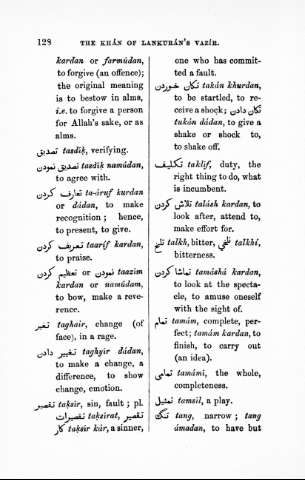 128 THE KHÁN OF LANKURÁN'S VAZÍR.
kardan or farmúdan,
to forgive (an offence);
the original meaning
is to bestow in alms,
i.e. to forgive a person
for Allah's sake, or as
alms.
تصدیق tasdík, verifying.
تصدیق نمودن tasdík namúdan,
to agree with.
تعارف کردن ta-áruf kurdan
or dádan, to make
recognition; hence,
to present, to give.
تعریف کردن taaríf kardan,
to praise.
تعظیم کردن or نمودن taazím
kardan or namúdan,
to bow, make a reve-
rence.
تغیر taghair, change (of
face), in a rage.
تغییر دادن taghyír dádan,
to make a change, a
difference, to show
change, emotion.
تقصیر taksír, sin, fault; pl.
تقصیرات taksírat, تقصیر
کار taksír kár, a sinner,
one who has commit-
ted a fault.
تکان خوردن takán khurdan,
to be startled, to re-
ceive a shock; تکان
دادن tukán dádan, to give a
shake or shock to,
to shake off.
تکلیف taklíf, duty, the
right thing to do, what
is incumbent.
تلاش کردن talásh kardan, to
look after, attend to,
make effort for.
تلخ talkh, bitter, تلخی talkhí,
bitterness.
تماشا کردن tamáshá kardan,
to look at the specta-
cle, to amuse oneself
with the sight of.
تمام tamám, complete, per-
fect; tamám kardan, to
finish, to carry out
(an idea).
تمامی tamámí, the whole,
completeness.
تمثیل tamsíl, a play.
تنگ tang, narrow; tang
ámadan, to have but